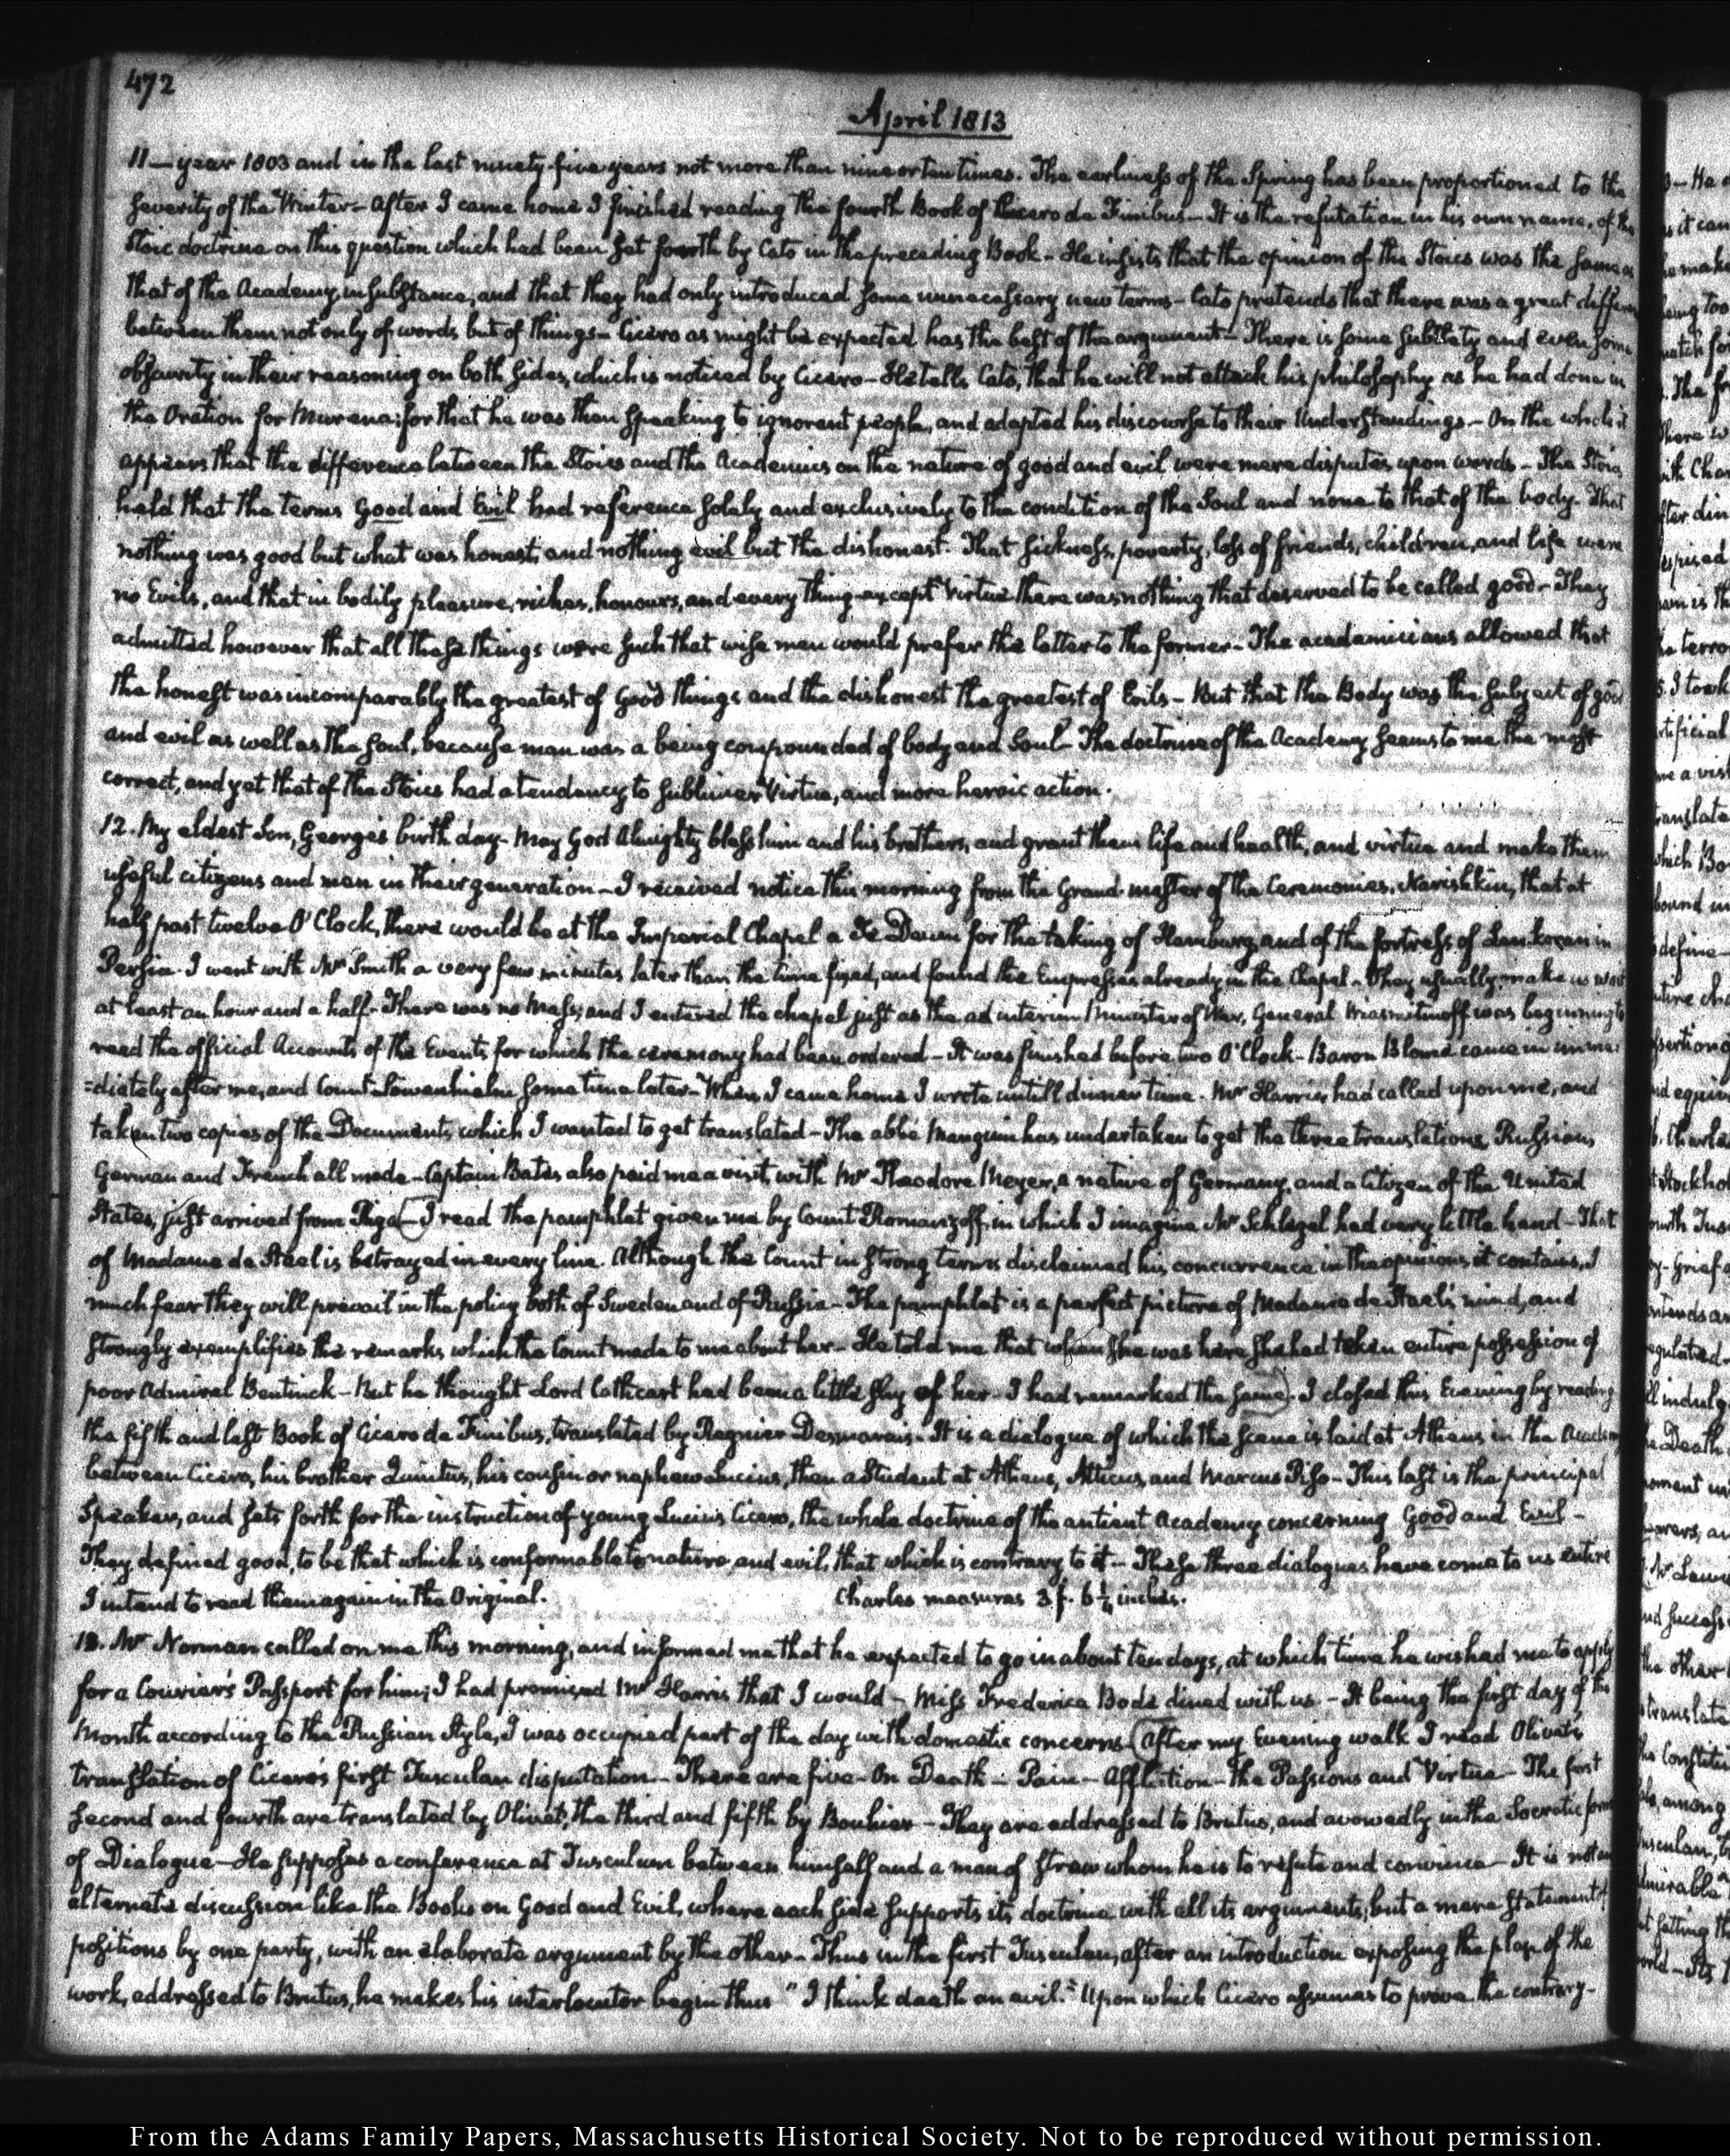 472
April 1813
11 — year 1803 and in the last ninety-five years not more than nine or ten times. The earliness of the Spring has been proportioned to the
severity of the Winter — After I came home I finished reading the fourth Book of Cicero de Finibus — It is the refutation in his own name, of the
Stoic doctrine on this question which had been set forth by Cato in the preceding Book — He insists that the opinion of the Stoics was the same as
that of the Academy in substance, and that they had only introduced some unnecessary new terms — Cato pretends that there was a great differen
between them not only of words but of things — Cicero as might be expected has the best of the argument — There is some subtlety and even some
obscurity in their reasoning on both sides, which is noticed by Cicero — He tells Cato, that he will not attack his philosophy as he had done in
the Oration for Murena; for that he was then speaking to ignorant people, and adapted his discourse to their Understandings — On the whole it
appears that the difference between the Stoics and the Academics on the nature of good and evil were mere disputes upon words — The Stoics
held that the terms Good and Evil had reference solely and exclusively to the condition of the Soul and none to that of the body. That
nothing was good but what was honest, and nothing evil but the dishonest. That sickness, poverty, loss of friends, children, and life were
no Evils, and that in bodily pleasure, riches, honours, and every thing except Virtue there was nothing that deserved to be called good — They
admitted however that all these things were such that wise men would prefer the latter to the former — The academicians allowed that
the honest was incomparably the greatest of Good things and the dishonest the greatest of Evils — But that the Body was the subject of good
and evil as well as the soul, because man was a being compounded of body and Soul — The doctrine of the Academy seems to me the most
correct, and yet that of the Stoics had a tendency to sublimer Virtue, and more heroic action.
12. My eldest Son, George's birth day — May God Almighty bless him and his brothers, and grant them life and health, and virtue and make them
useful citizens and men in their generation — I received notice this morning from the Grand-master of the Ceremonies, Narishkin, that at
half past twelve O'Clock, there would be at the Imperial Chapel a Te Deum for the taking of Hamburg and of the fortress of Lenkoran in
Persia. I went with Mr Smith a very few minutes later than the time fixed, and found the Empresses already in the Chapel — They usually make us wait
at least an hour and a half — There was no Mass; and I entered the chapel just as the ad interim Minister of War, General Wiasmitinoff was beginning to
read the official Accounts of the Events for which the ceremony had been ordered — It was finished before two O'Clock — Baron Blome came in imme-
=diately after me, and Count Löwenhielm some time later — When I came home I wrote untill dinner time. Mr Harris had called upon me, and
taken two copies of the Documents which I wanted to get translated — The abbé Manguin has undertaken to get the three translations Russian,
German and French all made — Captain Bates also paid me a visit, with Mr Theodore Meyer, a native of Germany, and a Citizen of the United
States, just arrived from Riga — I read the pamphlet given me by Count Romanzoff, in which I imagine Mr Schlegel had very little hand — That
of Madame de Stael is betrayed in every line. Although the Count in strong terms disclaimed his concurrence in the opinions it contains, I
much fear they will prevail in the policy both of Sweden and of Russia — The pamphlet is a perfect picture of Madame de Stael's mind, and
strongly exemplifies the remarks which the Count made to me about her — He told me that when she was here she had taken entire possession of
poor Admiral Bentinck — But he thought Lord Cathcart had been a little shy of her — I had remarked the same. I closed this Evening by reading
the fifth and last Book of Cicero de Finibus, translated by Regnier Desmarais — It is a dialogue of which the scene is laid at Athens in the Academy
between Cicero, his brother Quintus, his cousin or nephew Lucius, then a Student at Athens, Atticus, and Marcus Piso — This last is the principal
Speaker, and sets forth for the instruction of young Lucius Cicero, the whole doctrine of the antient Academy concerning Good and Evil —
They defined good, to be that which is conformable to nature, and evil, that which is contrary to it — These three dialogues have come to us entire
I intend to read them again in the Original. Charles measures 3 f. 6 1/4 inches.
13. Mr Norman called on me this morning, and informed me that he expected to go in about ten days, at which time he wished me to apply
for a Courier's Passport for him; I had promised Mr Harris that I would — Miss Frederica Bode dined with us — It being the first day of the
Month according to the Russian Style, I was occupied part of the day with domestic concerns — After my Evening walk I read Olivet's
translation of Cicero's first Tusculan disputation — There are five — On Death — Pain — Affliction — The Passions and Virtue — The first
second and fourth are translated by Olivet; the third and fifth by Bouhier — They are addressed to Brutus, and avowedly in the Socratic form
of Dialogue — He supposes a conference at Tusculum between himself and a man of straw whom he is to refute and convince — It is not an
alternate discussion like the Books on Good and Evil, where each side supports its doctrine with all its arguments; but a mere statement of
positions by one party, with an elaborate argument by the other — Thus in the first Tusculan, after an introduction exposing the plan of the
work, addressed to Brutus, he makes his interlocutor begin thus "I think death an evil." Upon which Cicero assumes to prove the contrary —
From the Adams Family Papers, Massachusetts Historical Society. Not to be reproduced without permission.